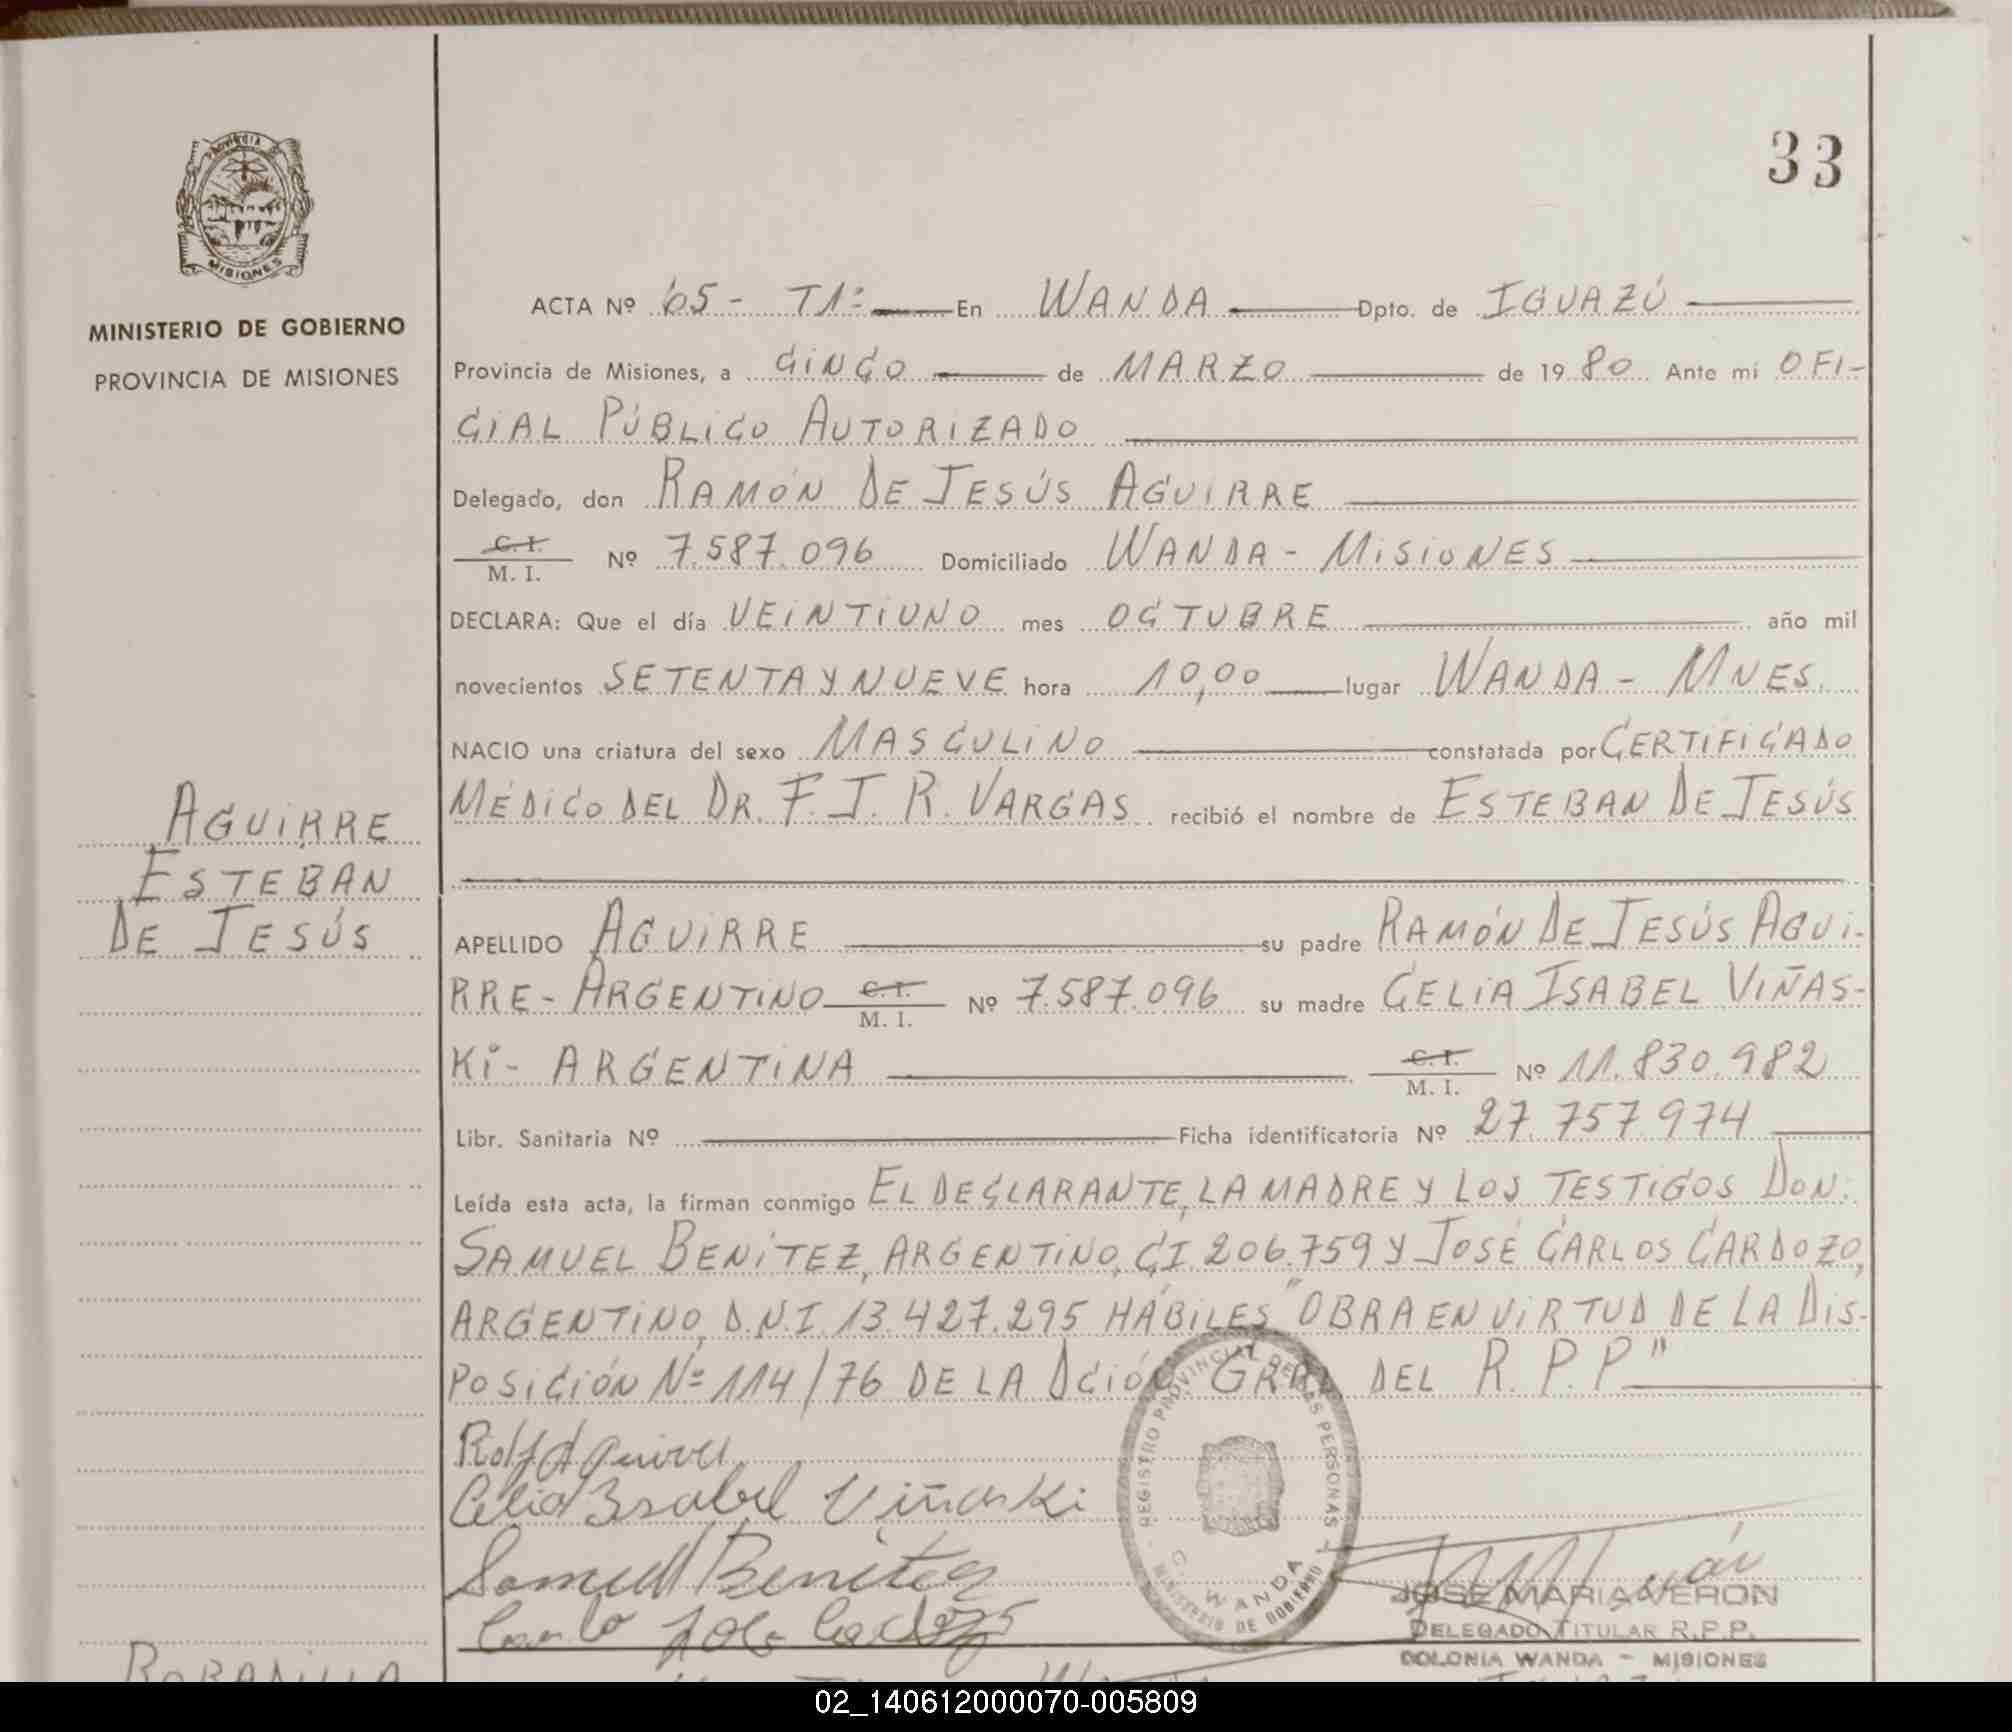 33
PROVINCIA DE
MISIONES
MINISTERIO DE GOBIERNO
PROVINCIA DE MISIONES
ACTA Nº 65- T1º En WANDA Dpto. de IGUAZÚ
Provincia de Misiones, a CINCO de MARZO de 1980 Ante mí OFI-
CIAL PÚBLICO AUTORIZADO
Delegado, don RAMÓN DE JESÚS AGUIRRE
C. I.
M. I. Nº 7.587.096 Domiciliado WANDA - MISIONES
DECLARA: Que el día VEINTIUNO mes OCTUBRE año mil
novecientos SETENTA Y NUEVE hora 10,00 lugar WANDA - MNES.
NACIO una criatura del sexo MASCULINO constatada por CERTIFICADO
MÉDICO DEL DR. F. J. R. VARGAS recibió el nombre de ESTEBAN DE JESÚS
AGUIRRE
ESTEBAN
DE JESÚS
APELLIDO AGUIRRE su padre RAMÓN DE JESÚS AGUI-
RRE - ARGENTINO C. I. M. I. Nº 7.587.096 su madre CELIA ISABEL VIÑAS-
KI - ARGENTINA C. I. M. I. Nº 11.830.982
Libr. Sanitaria Nº Ficha identificatoria Nº 27.757.974
Leída esta acta, la firman conmigo EL DECLARANTE, LA MADRE Y LOS TESTIGOS DON:
SAMUEL BENITEZ, ARGENTINO, C.I. 206.759 Y JOSÉ CARLOS CARDOZO,
ARGENTINO, D.N.I. 13.427.295 HÁBILES "OBRA EN VIRTUD DE LA DIS-
POSICIÓN Nº 114/76 DE LA DCIÓN GRAL DEL R. P. P"
Celia Isabel Viñaski
Samuel Benitez
REGISTRO PROVINCIAL DE LAS PERSONAS
C. WANDA
MINISTERIO DE GOBIERNO
JOSE MARIA VERON
DELEGADO TITULAR R.P.P.
COLONIA WANDA - MISIONES
02_140612000070-005809